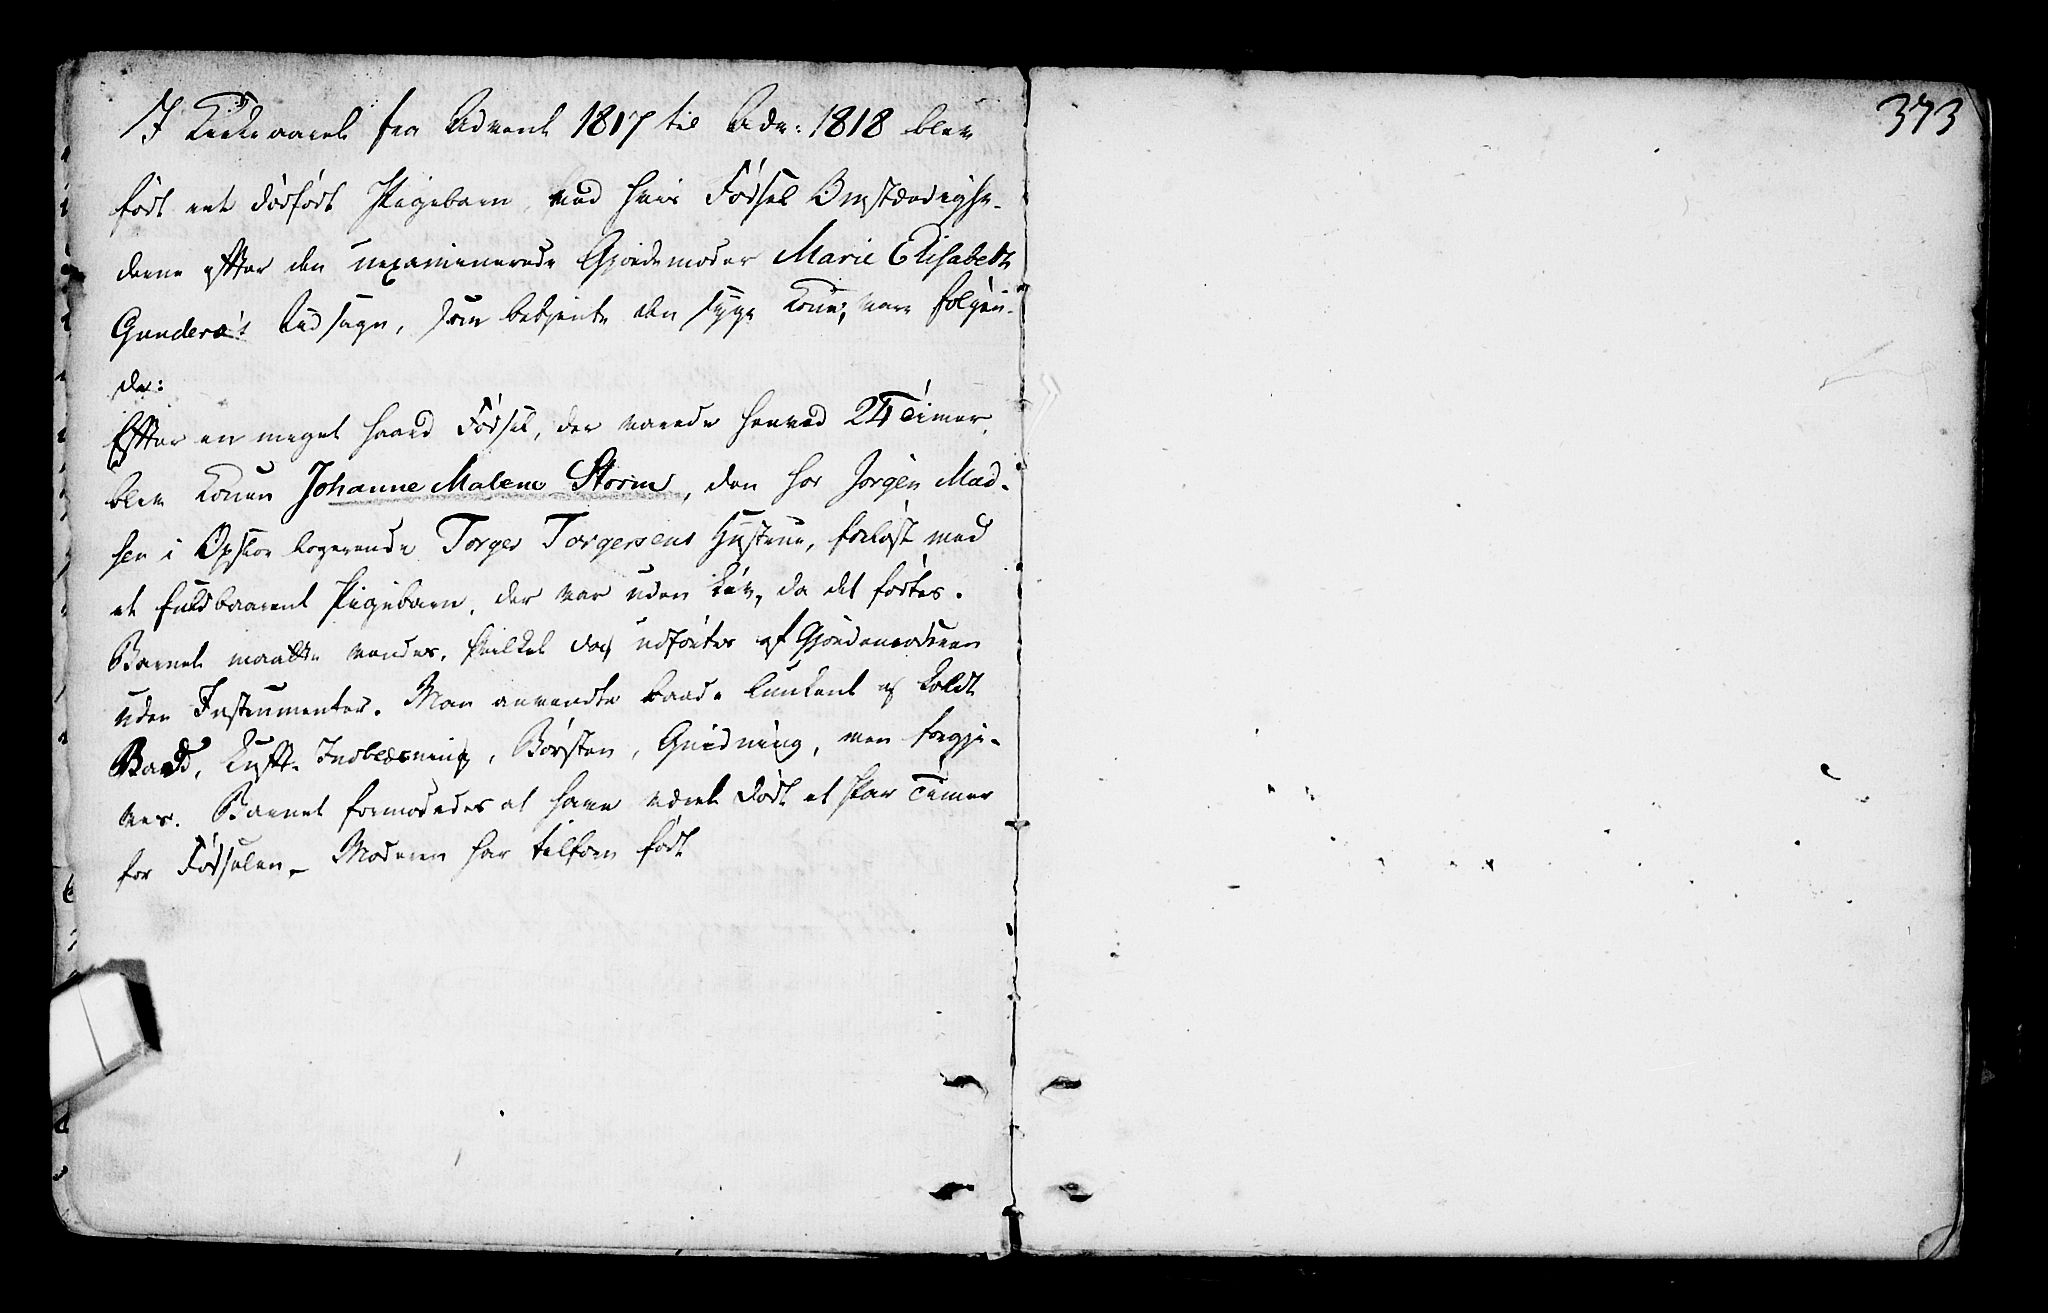 I Kirkeaaret fra Advent 1817 til Adv: 1818 blev
født eet dødfødt Pigebarn, ved hvis Fødsel Omstændighe-
derne efter den uexaminerede Gjordemoder Marie Elisabeth
Gunderø's Udsagn, som betjente den syge Kone, vare følgen-
de:
Efter en meget haard Fødsel, der varede henved 24 Timer,
blev Konen Johanne Malene Storm, den hos Jørgen Mad-
sen i logerende Torger Torgersens Hustrue, forløst med
et fuldbaarent Pigebarn, der var uden Liv, da det fødtes.
Barnet maatte vendes, hvilket dog udførtes af Gjordemoderen
uden Instrumenter. Man anvendte baade lunkent og koldt
Bad, Luft-Indblæsning, Børsten, Gnidning, men forgje-
ves. Barnet formodedes at have været dødt et Par Timer
for Fødselen. Moderen har tilforn født
373